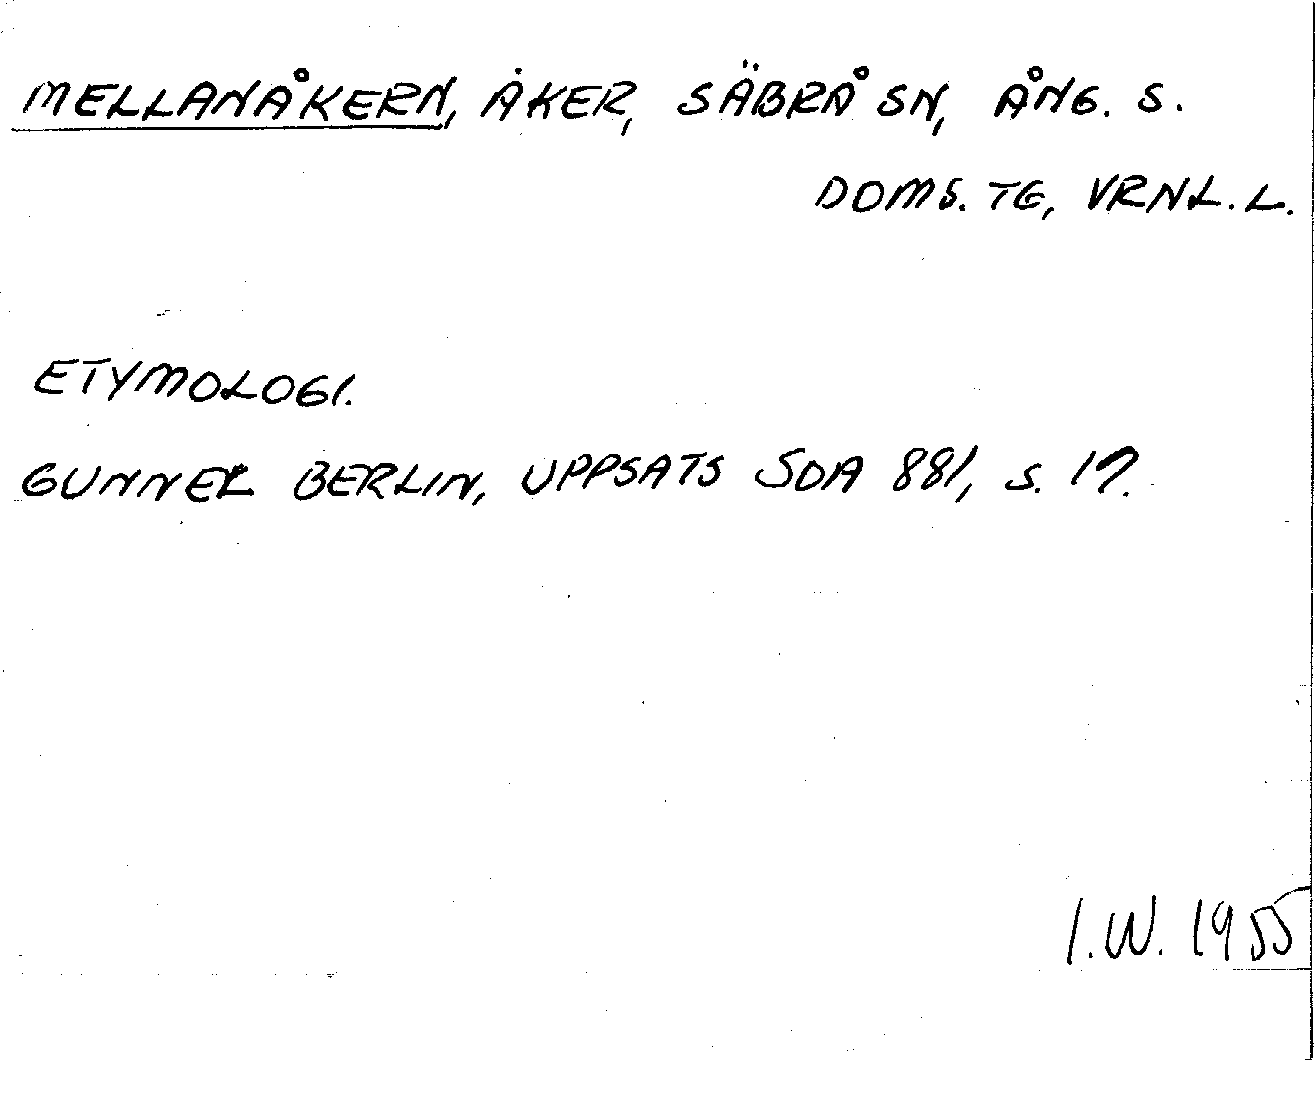 MELLANÅKERN, ÅKER, SÄBRÅ SN, ÅNG. S.
DOMS. TG, VRNL. L.
ETYMOLOGI.
GUNNEL BERLIN, UPPSATS SOA 881, S. 17.
I.W. 1955